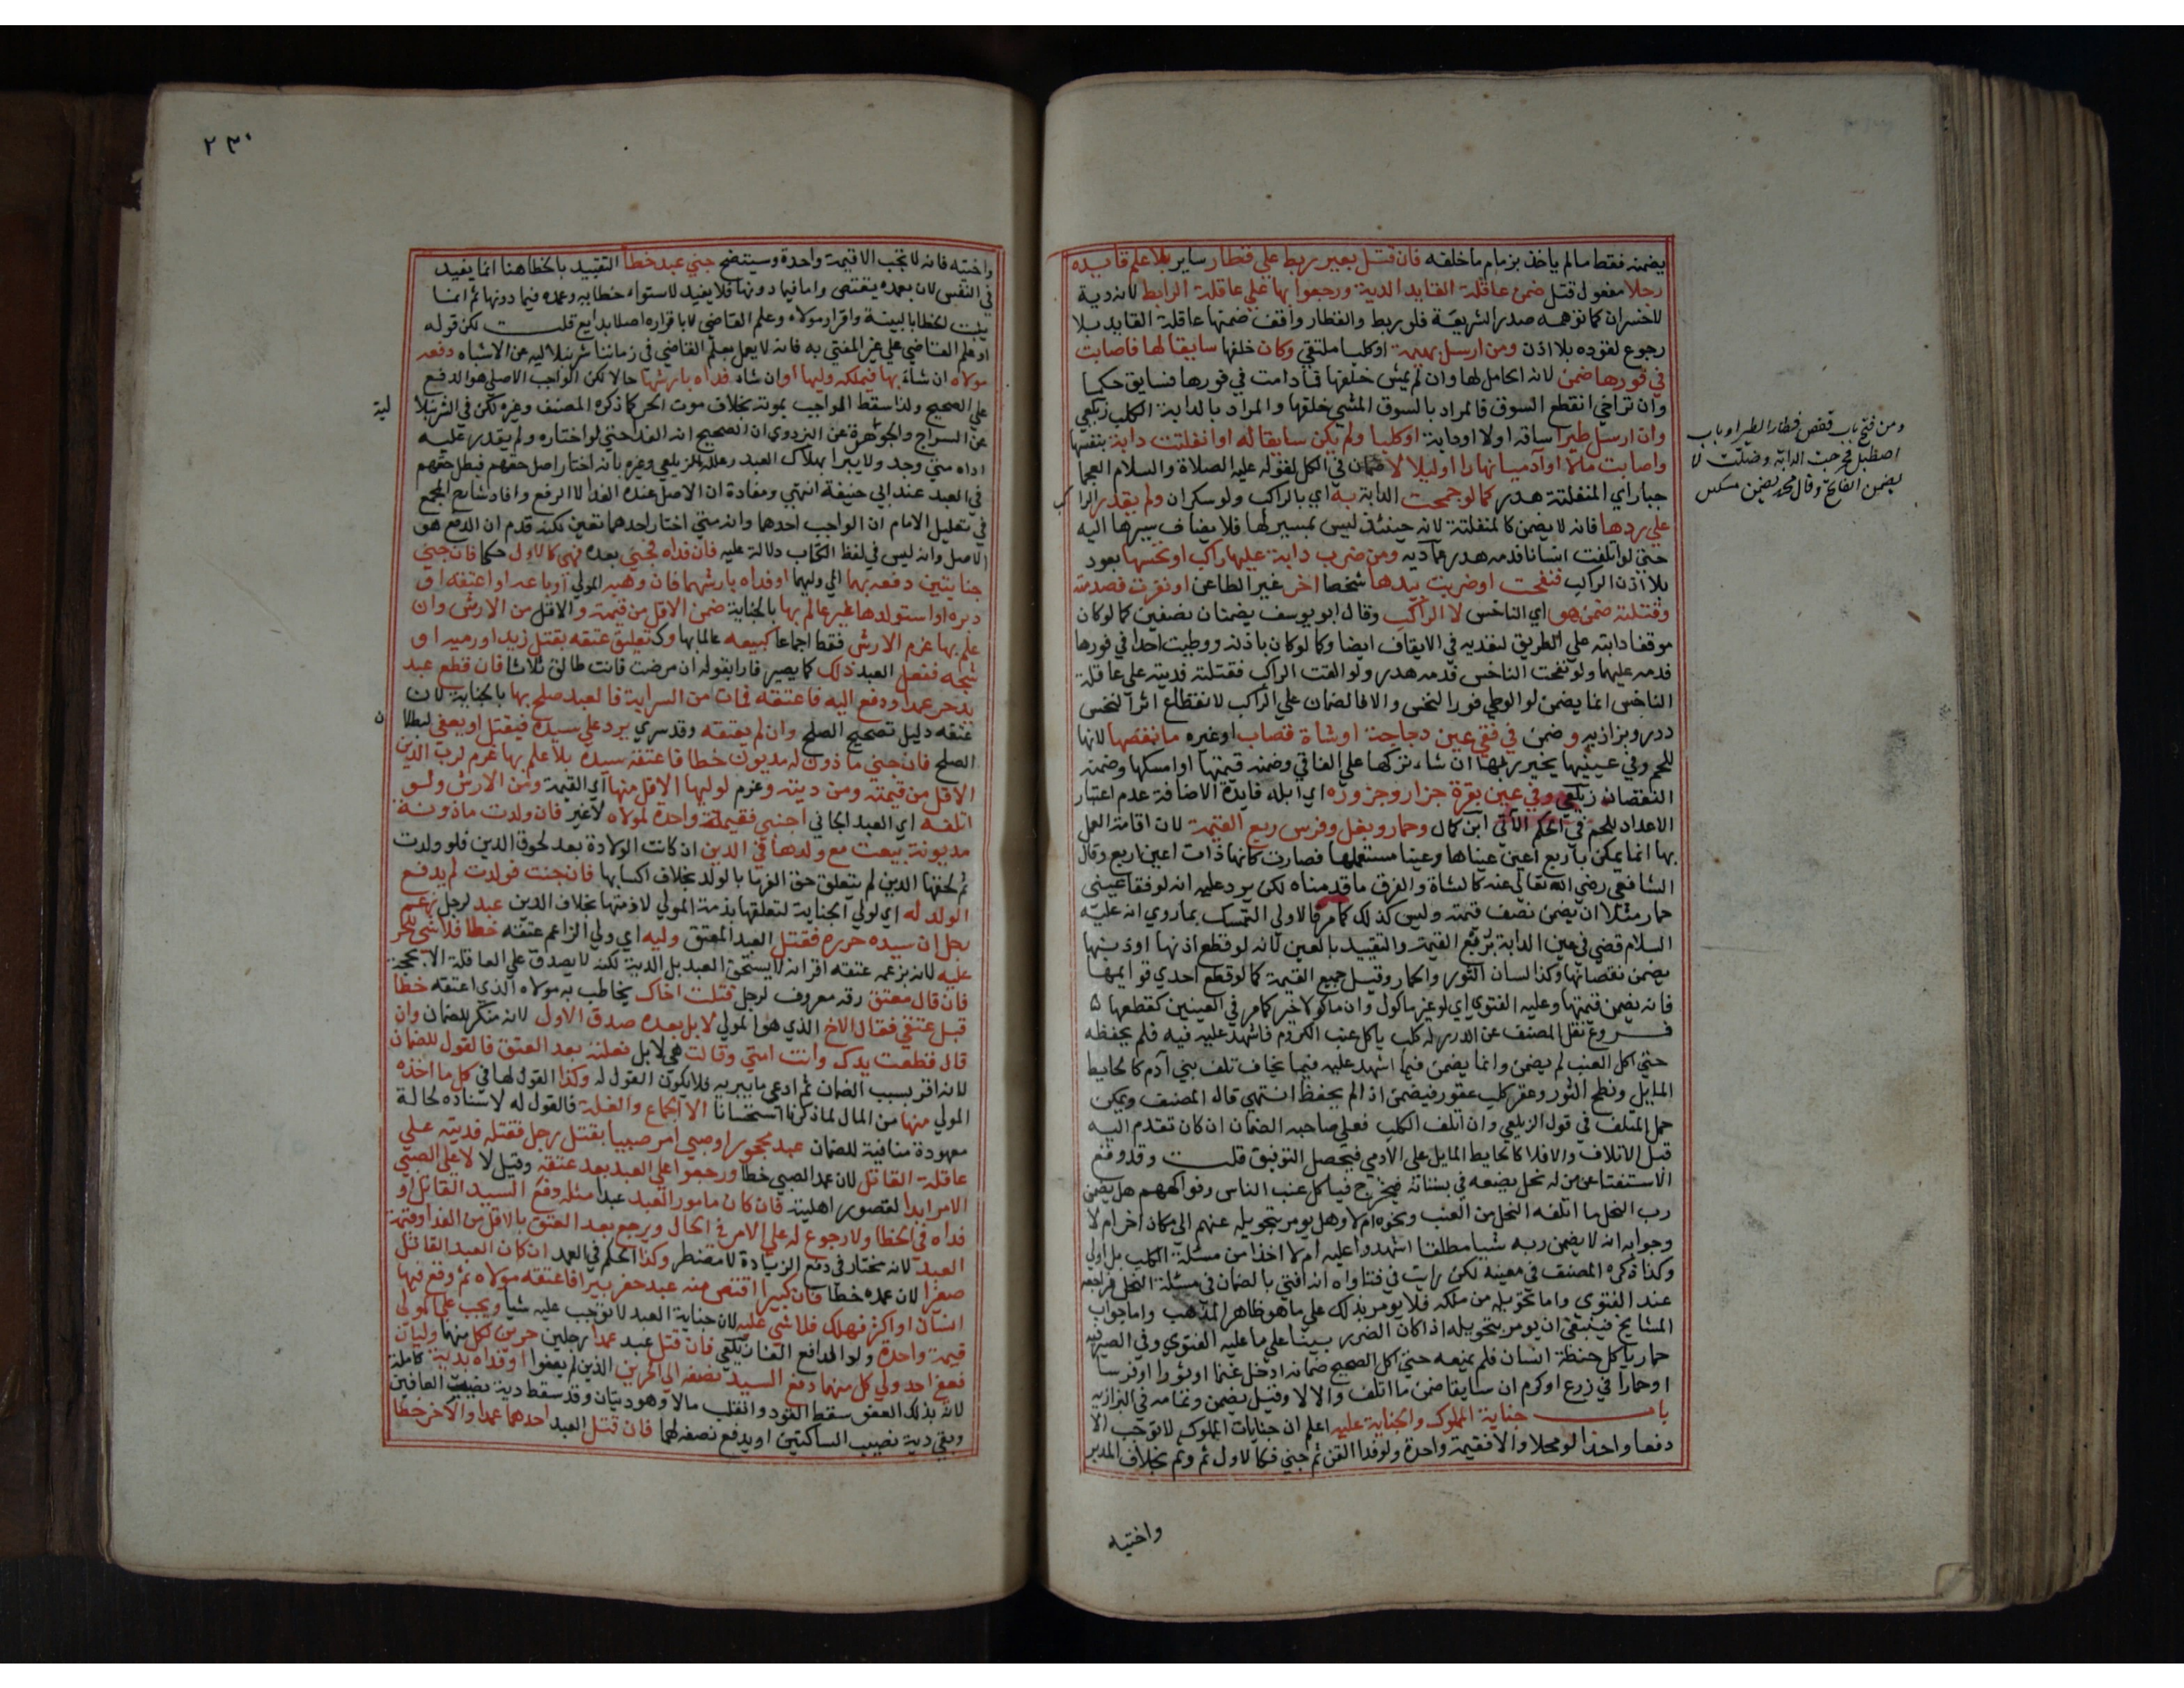 يضمنه فقط مالم ياخذ بزمام ماخلفه فان قتل بعير ربط علي قطار ساير بلا علم قايده
رجلا مفعول قتل ضمن عاقلة القايد الدية ورجعوا بها علي عاقلة الرابط لانه دية
لاخسران كما توهمه صدر الشريعة فلو ربط والقطار واقف ضمنها عاقلة القايد بلا
رجوع لقوده بلا اذن ومن ارسل بهيمة او كلبا ملتقي وكان خلفها سايقا لها فاصابت
في فورها ضمن لانه الحامل لها وان لم يمش خلفها فمادامت في فورها فسايق حكما
وان تراخي انقطع السوق فالمراد بالسوق المشي خلفها والمراد بالدابة الكلب زيلعي
وان ارسل طيرا ساقه اولا او دابة او كلبا ولم يكن سايقا له او انفلتت دابة بنفسها
واصابت مالا او آدميا نهارا او ليلا لا ضمان في الكل لقوله عليه الصلاة والسلام العجما
جبار اي المنفلتة هدر كما لو جمحت الدابة به اي بالراكب ولو سكران ولم يقدر الراكب
علي ردها فانه لا يضمن كالمنفلتة لانه حينئذ ليس بمسير لها فلا يضاف سيرها اليه
حتي لو اتلفت انسانا فدمه هدر عمادية ومن ضرب دابة عليها راكب او نخسها بعود
بلا اذن الراكب فنفحت او ضربت بيدها شخصا اخر غير الطاعن او نفرت فصدمته
وقتلته ضمن هو اي الناخس لا الراكب وقال ابو يوسف يضمنان نصفين كما لو كان
موقفا دابته علي الطريق لتعديه في الايقاف ايضا وكما لو كان باذنه ووطيت احدا في فورها
فدمه عليهما ولو نفحت الناخس فدمه هدر ولو القت الراكب فقتلته فديته علي عاقلة
الناخس انما يضمن لو الوطي فور النخس والا فالضمان علي الراكب لانقطاع اثر النخس
درر وبزازيه وضمن في فقئ عين دجاجة او شاة قصاب او غيره ما نقصها لانها
للحم وفي عينيها يخير ربها ان شاء تركها علي الفاقي وضمنه قيمتها او امسكها وضمنه
النقصان زيلعي وفي عين بقرة جزار وجزوره اي ابله فايدة الاضافة عدم اعتبار
الاعداد للحم في الحكم الاتي ابن كمال وحمار وبغل وفرس ربع القيمة لان اقامة العمل
بها انما يمكن باربع اعين عيناها وعينا مستعملها فصارت كانها ذات اعين اربع وقال
الشافعي رضي الله تعالي عنه كالشاة والفرق ما قدمناه لكن يرد عليه انه لو فقا عيني
حمار مثلا ان يضمن نصف قيمته وليس كذلك كما مر فالاولي التمسك بما روي انه عليه
السلام قضي في عين الدابة بربع القيمة والتقييد بالعين لانه لو قطع اذنها او ذنبها
يضمن نقصانها وكذا لسان الثور والحمار وقيل جميع القيمة كما لو قطع احدي قوايمها
فانه يضمن قيمتها وعليه الفتوي اي لو غير ماكول وان ماكولا خير كما مر في العينين كقطعها ۵
فـــروع نقل المصنف عن الدرر له كلب ياكل عنب الكروم فاشهد عليه فيه فلم يحفظه
حتي اكل العنب لم يضمن وانما يضمن فيما اشهد عليه فيما يخاف تلف بني آدم كالحايط
المايل ونطح الثور وعقر كلب عقور فيضمن اذا لم يحفظ انتهي قال المصنف ويمكن
حمل المتلف في قول الزيلعي وان اتلف الكلب فعلي صاحبه الضمان ان كان تقدم اليه
قبل الاتلاف والا فلا كالحايط المايل علي الادمي فيحصل التوفيق قلت وقد وقع
الاستفتا عن من له نحل يضعه في بستانه فيخرج فياكل عنب الناس وفواكههم هل يضمن
رب النحل ما اتلفه النحل من العنب ونحوه ام لا وهل يومر بتحويله عنهم الي مكان اخر ام لا
وجوابه انه لا يضمن ربه شيا مطلقا اشهدوا عليه ام لا اخذا من مسئلة الكلب بل اولي
وكذا ذكره المصنف في معينه لكن رايت في فتاواه انه افتي بالضمان في مسئلة النحل فراجعه
عند الفتوي واما تحويله من ملكه فلا يومر بذلك علي ما هو ظاهر المذهب واما جواب
المشايخ فينبغي ان يومر بتحويله اذا كان الضرر بينا علي ما عليه الفتوي وفي الصيرفيه
حمار ياكل حنطة انسان فلم يمنعه حتي اكل الصحيح ضمانه ادخل غنما او ثورا او فرسا
او حمارا في زرع او كرم ان سايقا ضمن ما اتلف والا لا وقيل يضمن وتمامه في البزازيه
باب جناية المملوك والجناية عليه اعلم ان جنايات المملوك لا توجب الا
دفعا واحدا لو محلا والا فقيمة واحدة ولو فدا القن ثم جني فكالاول ثم وثم بخلاف المدبر
واختيه
ومن فتح باب قفص فطار الطير او باب
اصطبل فخرجت الدابة وضلت لا
يضمن الفاتح وقال محمد يضمن مسكين
٢٣٠
واختيه فانه لا تجب الا قيمة واحدة وسيتضح جني عبد خطا التقييد بالخطا هنا انما يفيد
في النفس لان بعمده يقتص واما فيما دونها فلا يفيد لاستواء خطايه وعمده فيما دونها ثم انما
يثبت الخطا بالبينة واقرار مولاه وعلم القاضي لا باقراره اصلا بدايع قلت لكن قوله
او علم القاضي علي غير المفتي به فانه لا يعمل بعلم القاضي في زماننا شرنبلاليه عن الاشباه دفعه
مولاه ان شاء بها فيملكه وليها او ان شاء فداه بارشها حالا لكن الواجب الاصلي هو الدفع
علي الصحيح ولذا سقط الواجب بموته بخلاف موت الحر كما ذكره المصنف وغيره لكن في الشرنبلا
لية
عن السراج والجوهرة عن البزدوي ان الصحيح انه الفدا حتي لو اختاره ولم يقدر عليه
اداه متي وجد ولا يبرا بهلاك العبد وعلله الزيلعي وغيره بانه اختار اصل حقهم فبطل حقهم
في العبد عند ابي حنيفة انتهي ومفاده ان الاصل عنده الفدا لا الرفع وافاد شارح المجمع
في تعليل الامام ان الواجب احدهما وانه متي اختار احدهما تعين لكنه قدم ان الدفع هو
الاصل وانه ليس في لفظ الكتاب دلالة عليه فان فداه فجني بعده فهي كالاول حكما فان جني
جنايتين دفعه بهما الي وليهما او فداه بارشهما فان وهبه المولي او باعه او اعتقه او
دبره او استولدها غير عالم بها بالجناية ضمن الاقل من قيمته والاقل من الارش وان
علم بها غرم الارش فقط اجماعا كبيعه عالما بها وكتعليق عتقه بقتل زيد او رميه او
شجه ففعل العبد ذلك كما يصير فارا بقوله ان مرضت فانت طالق ثلاثا فان قطع عبد
يد حر عمدا ودفع اليه فاعتقه فمات من السراية فالعبد صلح بها بالجناية لان
عتقه دليل تصحيح الصلح وان لم يعتقه وقد سري يرد علي سيده فيقتل او يعفي لبطلا
ن
الصلح فان جني ماذون له مديون خطا فاعتقه سيده بلا علم بها غرم لرب الدين
الاقل من قيمته ومن دينه وغرم لوليها الاقل منها اي القيمة ومن الارش ولو
اتلفه اي العبد الجاني اجنبي فقيمة واحدة لمولاه لا غير فان ولدت ماذونة
مديونة بيعت مع ولدها في الدين ان كانت الولادة بعد لحوق الدين فلو ولدت
ثم لحقها الدين لم يتعلق حق الغرما بالولد بخلاف اكسابها فان جنت فولدت لم يدفع
الولد له اي لولي الجناية لتعلقها بذمة المولي لا ذمتها بخلاف الدين عبد لرجل زعم
رجل ان سيده حرره فقتل العبد المعتق وليه اي ولي الزاعم عتقه خطا فلا شئ للحر
عليه لانه بزعمه عتقه اقر انه لا يستحق العبد بل الدية لكنه لا يصدق علي العاقلة الا بحجة
فان قال معتق رقه معروف لرجل قتلت اخاك يخاطب به مولاه الذي اعتقه خطا
قبل عتقي فقال الاخ الذي هو المولي لا بل بعده صدق الاول لانه منكر للضمان وان
قال قطعت يدك وانت امتي وقالت هي لا بل فعلته بعد العتق فالقول للضمان
لانه اقر بسبب الضمان ثم ادعي ما يبريه فلا يكون القول له وكذا القول لها في كل ما اخذه
المولي منها من المال لما ذكرنا استحسانا الا الجماع والغلة فالقول له لاسناده لحالة
معهودة منافية للضمان عبد محجور او صبي امر صبيا بقتل رجل فقتله فديته علي
عاقلة القاتل لان عمد الصبي خطا ورجعوا علي العبد بعد عتقه وقيل لا لا علي الصبي
الامر ابدا لقصور اهليته فان كان مامور العبد عبدا مثله دفع السيد القاتل او
فداه في الخطا ولا رجوع له علي الامر في الحال ويرجع بعد العتق بالاقل من الفدا وقيمة
العبد لانه مختار في دفع الزيادة لا مضطر وكذا الحكم في العمد ان كان العبد القاتل
صغيرا لان عمده خطا فان كبيرا اقتص منه عبد حفر بيرا فاعتقه مولاه ثم وقع فيها
انسان او اكثر فهلك فلا شي عليه لان جناية العبد لا توجب عليه شيا ويجب علي المولي
قيمة واحدة ولو الواقع الفا زيلعي فان قتل عبد عمدا رجلين حرين لكل منهما وليان
فعفي احد ولي كل منهما دفع السيد نصفه الي الاخرين الذين لم يعفوا او فداه بدية كاملة
لانه بذلك العفو سقط القود وانقلب مالا وهو ديتان وقد سقط دية نصيب العافيين
وبقي دية نصيب الساكتين او يدفع نصفه لهما فان قتل العبد احدهما عمدا والاخر خطا